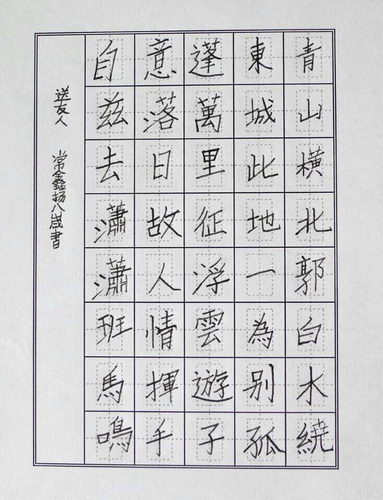 青山橫北郭白水繞
東城此地一為别孤
蓬萬里征浮雲遊子
意落日故人情揮手
自兹去瀟瀟班馬鳴
送友人
常鑫扬八歲書